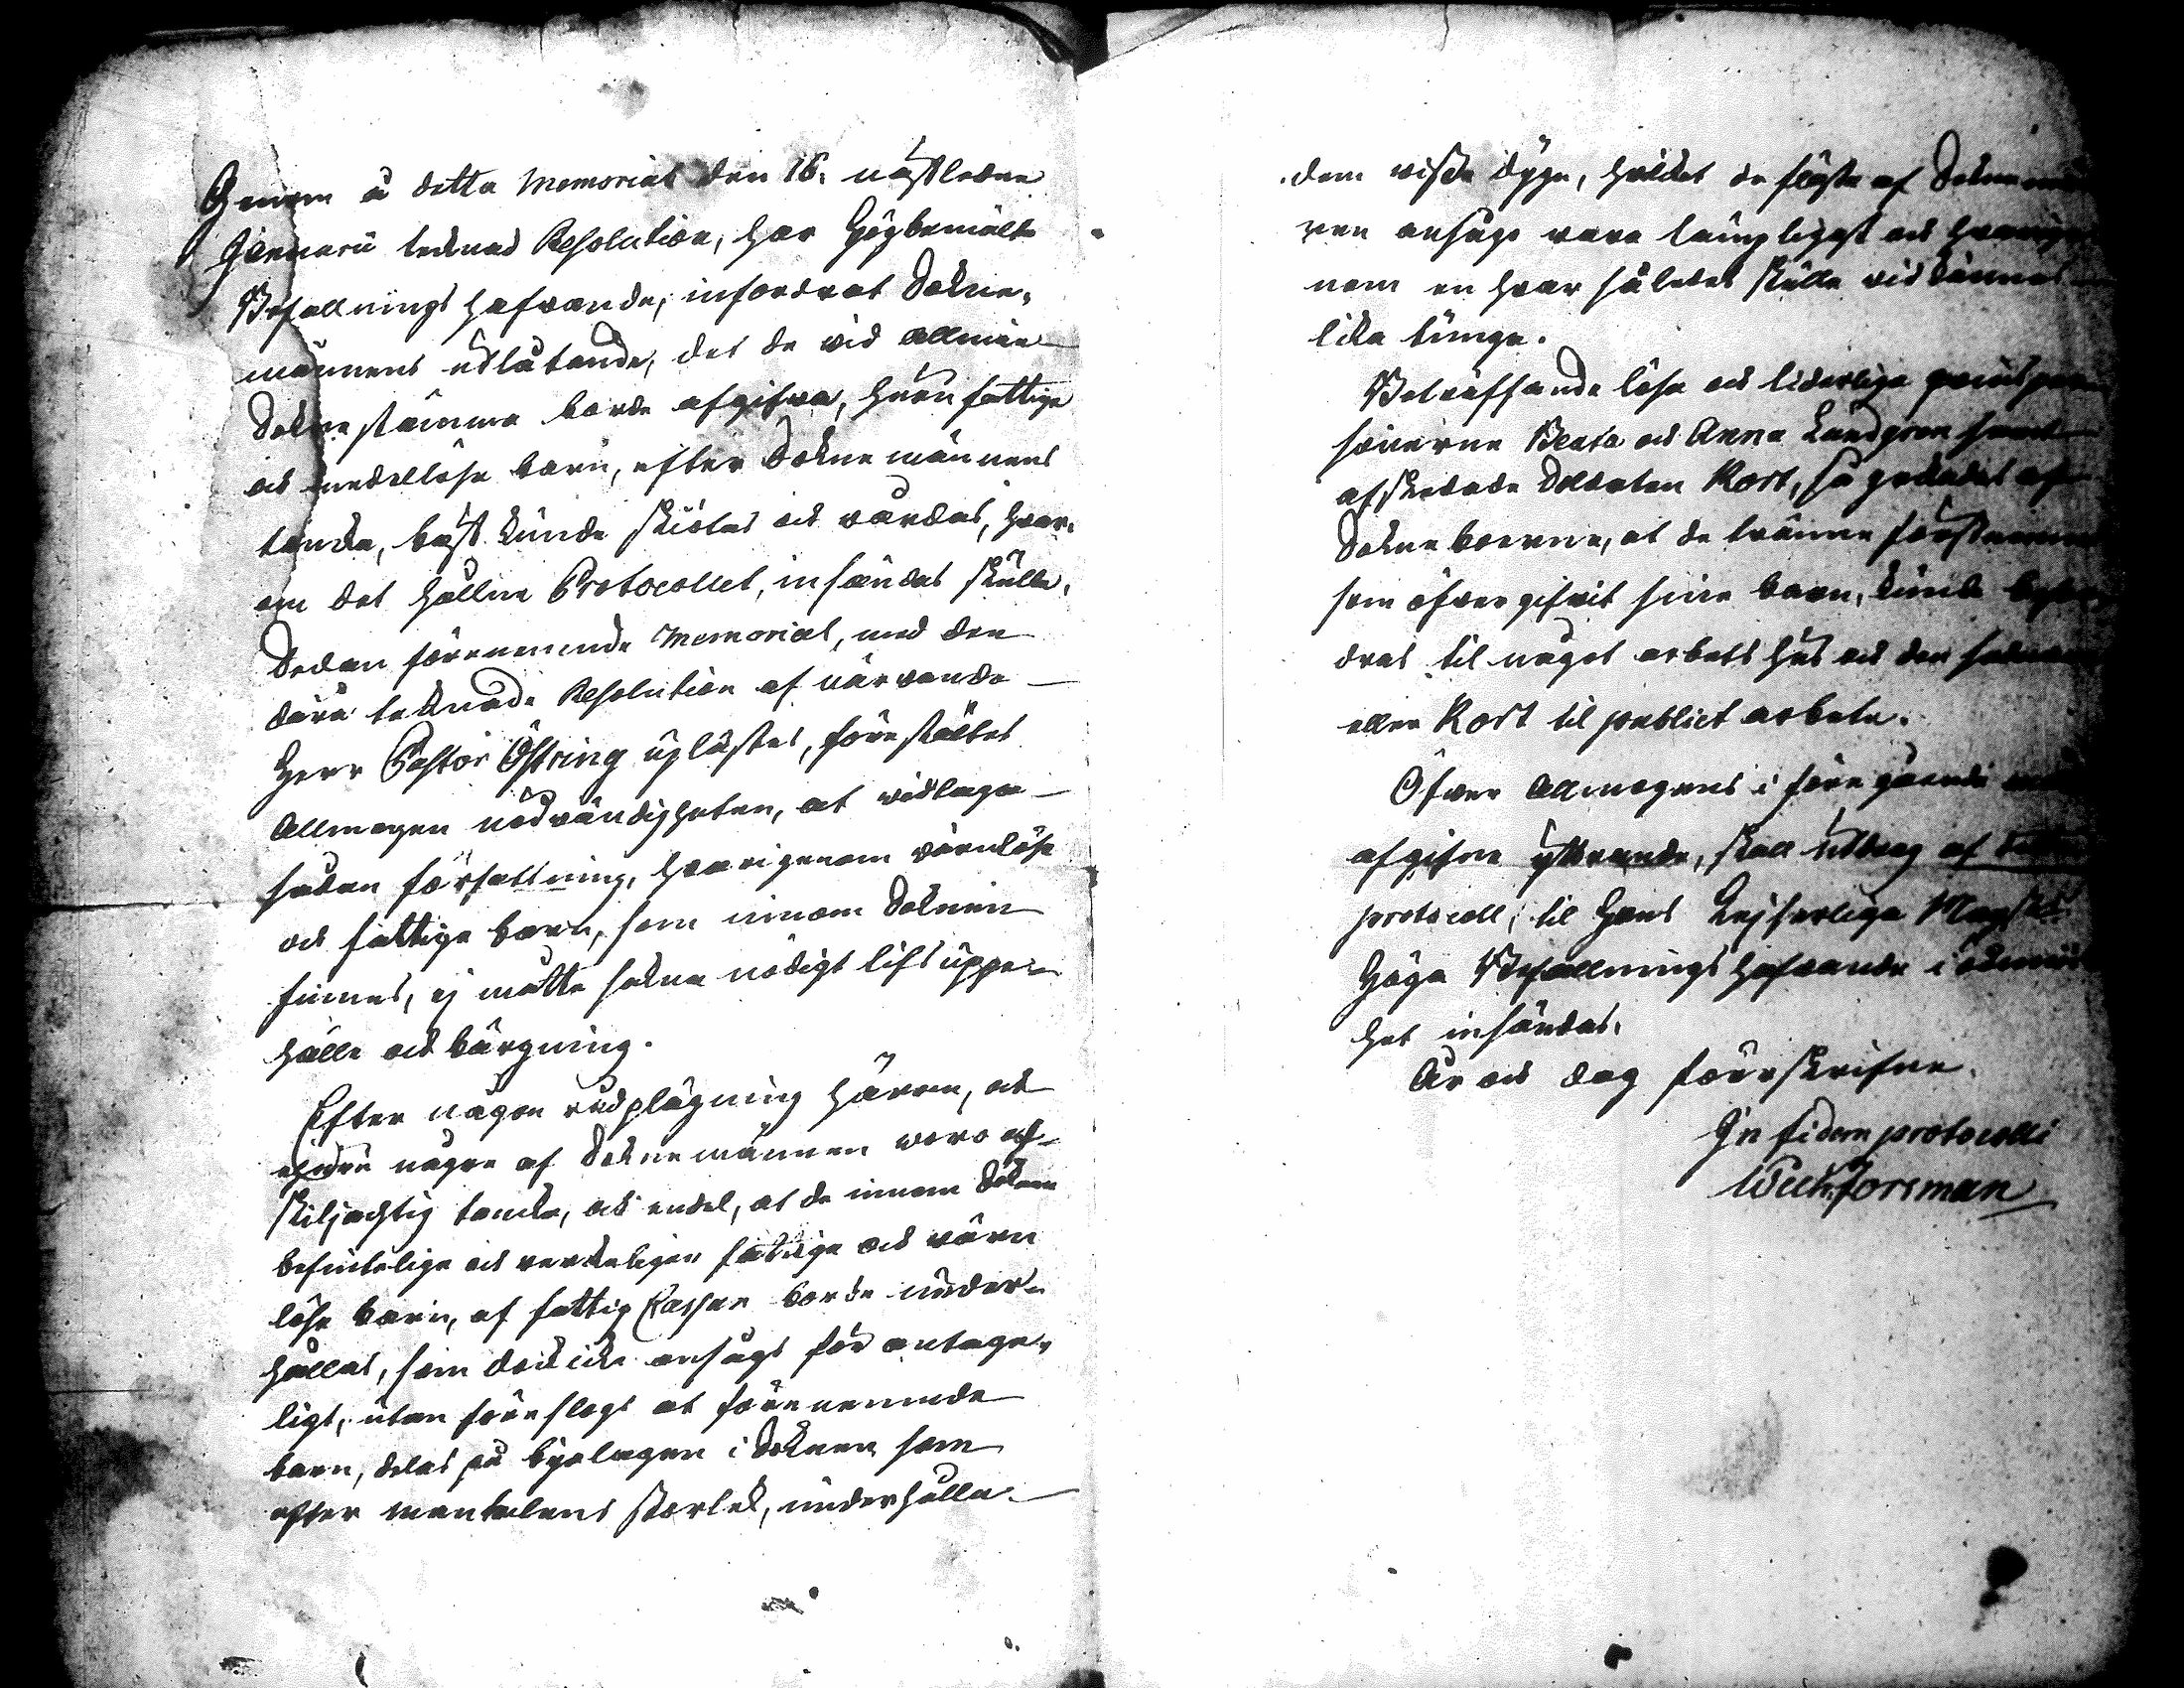 Genom å detta Memorial den 16. nästledne
Januarii teknad Resolution, har Högbemälte
Befallningshafvande, infordrat Sokne-
männens utlåtande, det de vid allmän
Sokne stämma borde afgifva, huru fattige
ock medellöse barn, efter Sokne männens
tanka, bäst kunde skiötas ock vårdas, hvar-
om det hållne Protocollet, insändas skulle.
Sedan förenemnde Memorial, med den
därå teknade Resolution af närvarande
Herr Pastor Östring uplästes, förestältes
Allmogen nödvändigheten, at vidtaga
sådan författning, hvarigenom värnlöse
ock fattige barn, som innom Soknen
finnes, ej måtte sakna nödigt lifs uppe-
hälle ock bärgning.
Efter någon rådplägning härom, ock
ehuru någre af Sokne männen voro af
skiljachtig tanka, ock endel, at de innom Soknen
befintelige ock verkeligen fattige ock värn
löse barn, af fattig Cassan borde under-
hållas, som dock icke ansågs för antage-
ligt, utan föreslogs at förenemnde
barn, delas på byalagen i Soknen som
efter mantalens storlek, underhålla
dem visse dygn, hvilket de fläste af Sokne
nen ansågo vara lämpligast ock
nom en hvar således skulle vidkännas
lika tunga.
Beträffande löse ock liderlige qvinsper
sonerne Beata ock Anna Lundgren samt
afskedade Soldaten Kort, så
Sokneboerne, at de tvänne förstnemnde
som öfvergifvit sine barn, kunde
dras til något arbets hus ock den
eller Kort til publict arbete.
Öfver Allmogens i föregående
afgifne yttrande, skall utdrag af
protocoll, til Hans Kejserliga Maj:ts
Höga Befallningshafvande i ödmiuk
het insändas.
År ock dag förrskrifne.
In fidem protocolli
Forsman